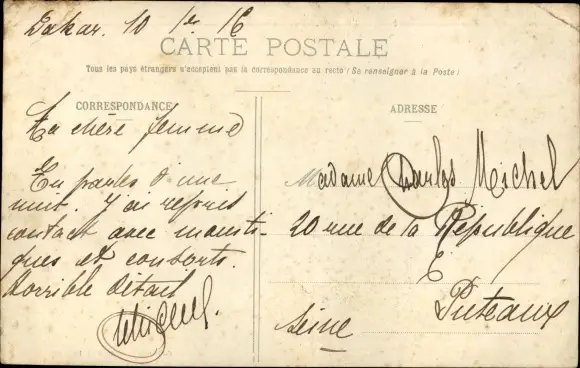 Dakar. 10 1er 16
CARTE POSTALE
Tous les pays étrangers n'acceptent pas la correspondance au recto (Se renseigner à la Poste)
CORRESPONDANCE
Ma chère femme
En parles d'une
nuit. J'ai repris
contact avec mousti-
ques et consorts.
horrible détail
Michel.
ADRESSE
Madame Charles Michel
20 rue de la République
Puteaux
Seine